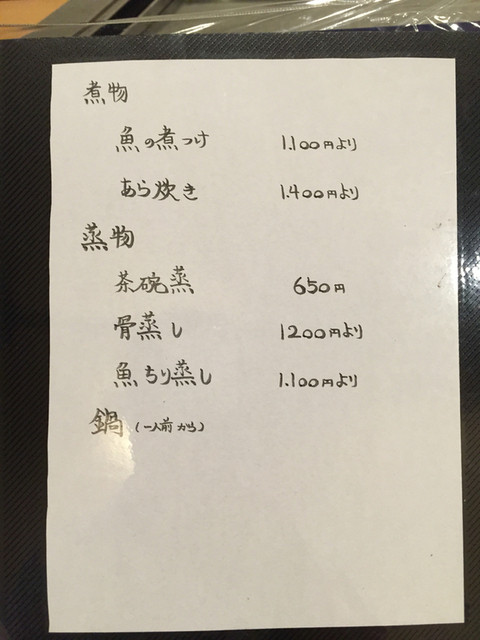 煮物
魚の煮つけ 1.100円より
あら炊き 1.400円より
蒸物
茶碗蒸 650円
骨蒸し 1200円より
魚ちり蒸し 1.100円より
鍋(一人前から)